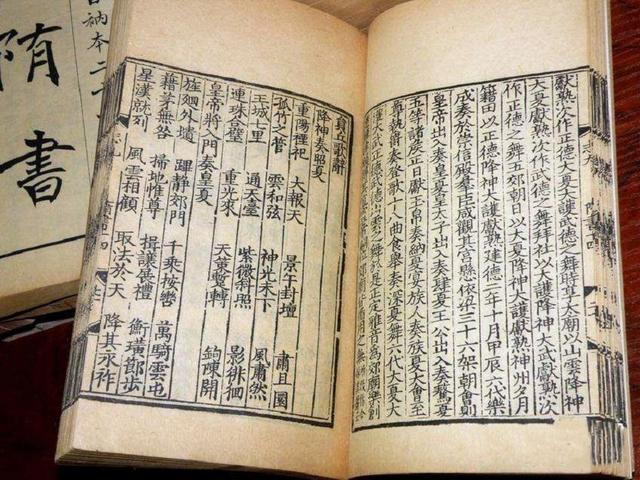 獻熟次作正德大夏大護武德之舞時享太廟以山雲降神
大夏獻熟次作武德之舞拜社以大護降神大武獻熟次
作正德之舞五郊朝日以大夏降神大護獻熟神州夕月
籍田以正德降神大護獻熟建德二年十月甲辰六代樂
成奏於崇信殿羣臣咸觀其宮懸依梁三十六架朝會則
皇帝出入奏皇夏皇太子出入奏肆夏王公出入奏驁夏
五等諸侯正日獻玉帛奏納夏宴族人奏族夏大會至
尊執爵奏登歌十八曲食舉奏深夏舞六代大夏大
護大武正德武德山雲之舞於是正定雅音爲郊廟樂創
員丘歌辭
降神奏昭夏
重陽禋祀 大報天 景午封壇 肅且圜
孤竹之管 雲和弦 神光未下 風肅然
王城七里 通天臺 紫微斜照 影徘徊
連珠合璧 重光來 天策蹔轉 鉤陳開
皇帝將入門奏皇夏
旌廻外壝 蹕靜郊門 千乘按轡 萬騎雲屯
藉茅無咎 掃地惟尊 揖讓展禮 衡璜節步
星漢就列 風雲相顧 取法於天 降其永祚
衲本二十
隋書